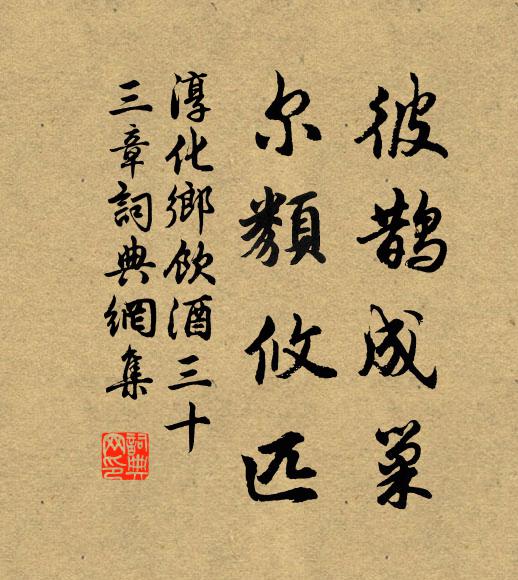 彼鹊成巢
尔類攸匹
淳化鄉飲酒三十
三章詞典網集
詞典网印